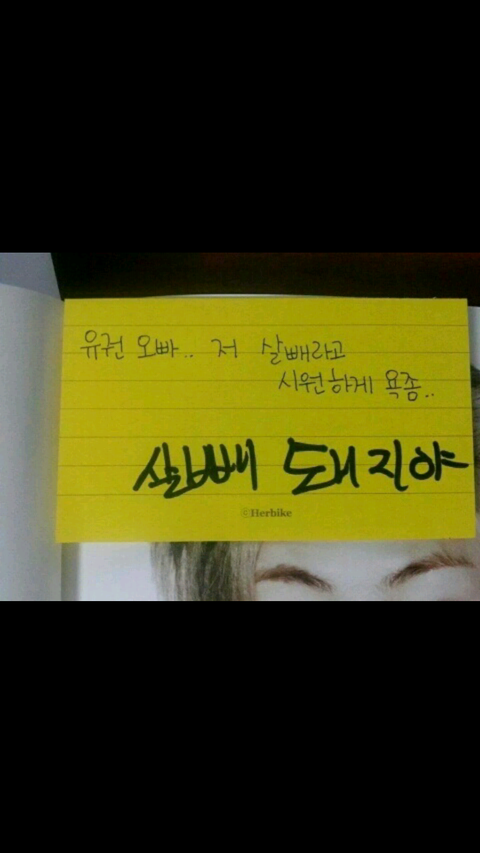 유권 오빠.. 저 살빼라고
시원하게 욕좀..
살빼 돼지야
©Herbike